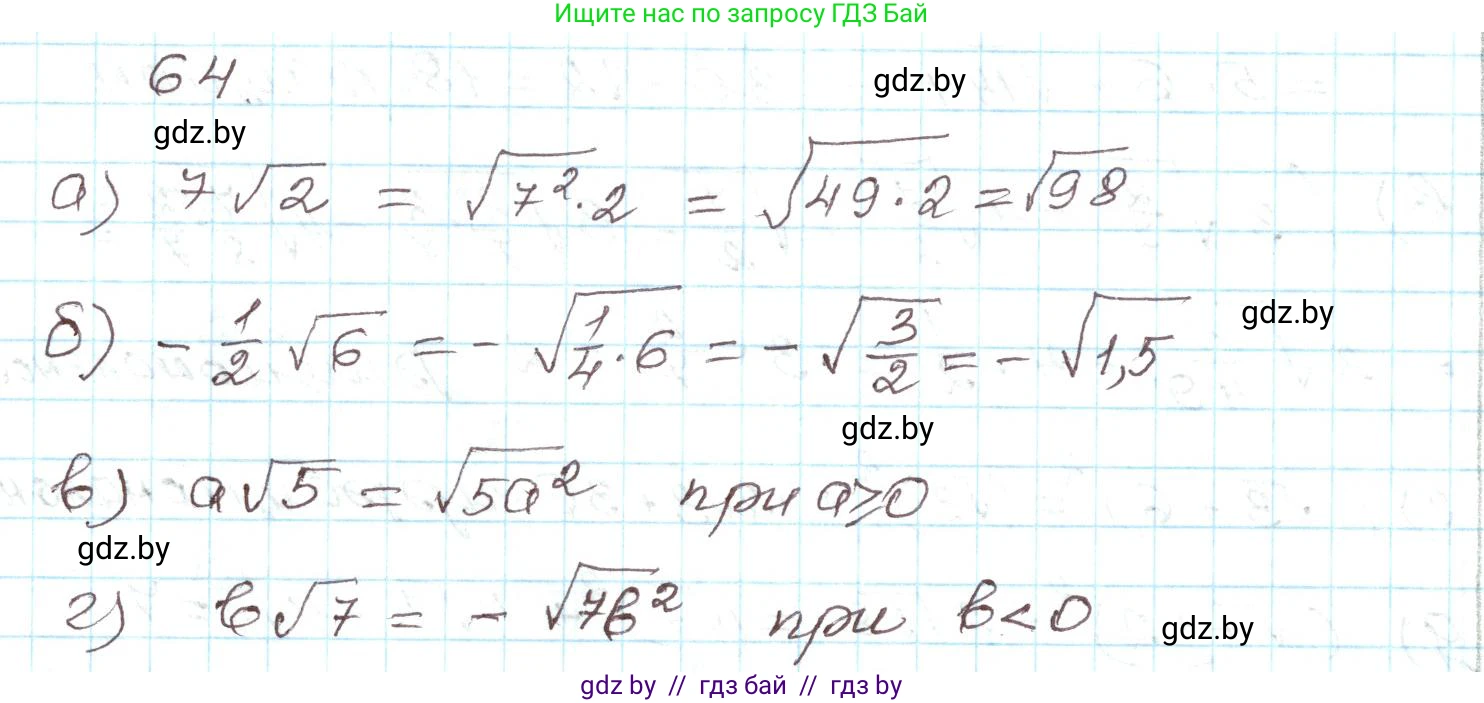 Ищите нас по запросу ГДЗ Бай
64.
gdz.by
gdz.by
а) 7√2 = √7²·2 = √49·2 = √98
б) -1/2 √6 = -√1/4·6 = -√3/2 = -√1,5
gdz.by
gdz.by
в) a√5 = √5a² при a⩾0
gdz.by
г) в√7 = - √7в² при в<0
gdz.by
gdz by // гдз бай // гдз by